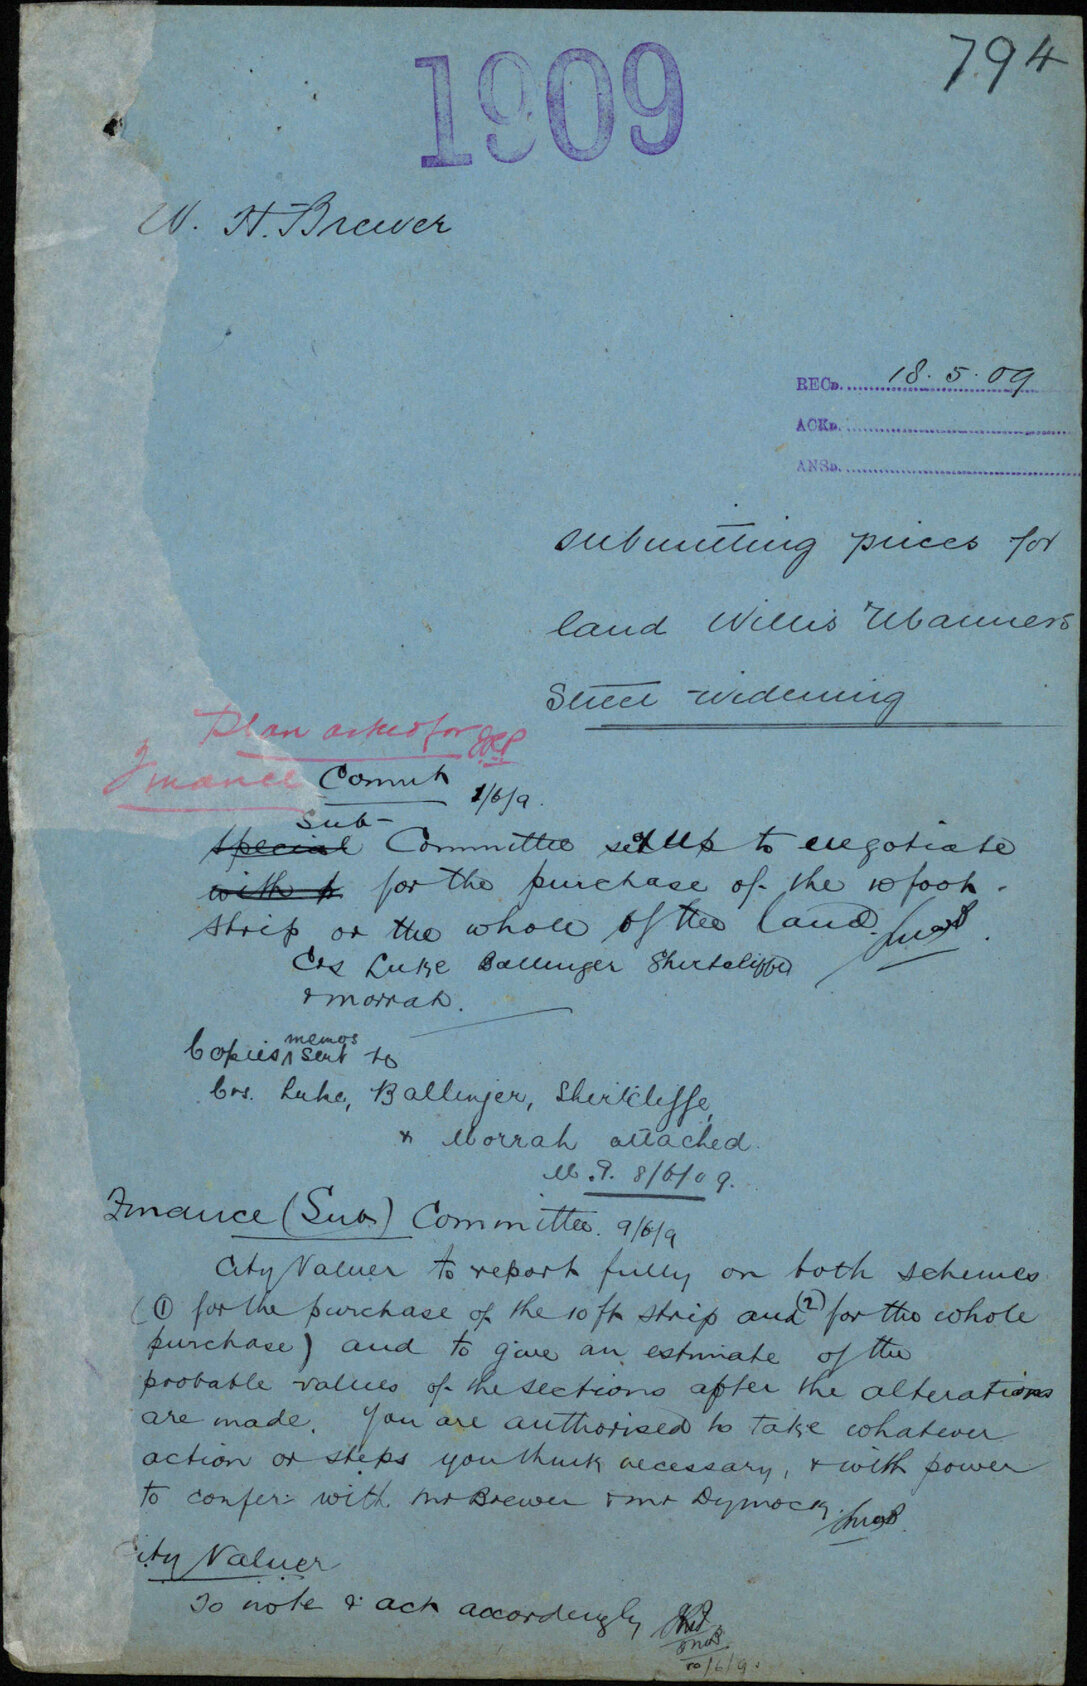 1909
794
W. H. Brewer
RECD. 18.5.09
ACKD.
ANSD.
submitting prices for
land Willis & Manners
Street widening
Plan asked for
Finance Commte 1/6/9.
Sub-
Special Committee set up to negotiate
with t for the purchase of the 10 foot
strip or the whole of the land.
Crs Luke Ballinger Shirtcliffe
& Morrah.
memos
Copies ^ sent to
Crs. Luke, Ballinger, Shirtcliffe,
& Morrah attached.
M.P. 8/6/09.
Finance (Sub) Committee. 9/6/9
City Valuer to report fully on both schemes
(① for the purchase of the 10 ft strip and ② for the whole
purchase) and to give an estimate of the
probable values of the sections after the alterations
are made. You are authorised to take whatever
action or steps you think necessary, & with power
to confer with Mr Brewer & Mr Dymock.
City Valuer
To note & act accordingly
10/6/9.